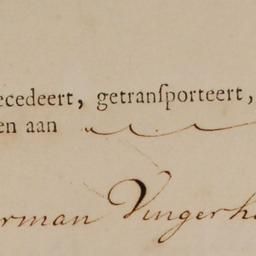 ecedeert, getranſporteert,
en aan
erman Vingerh